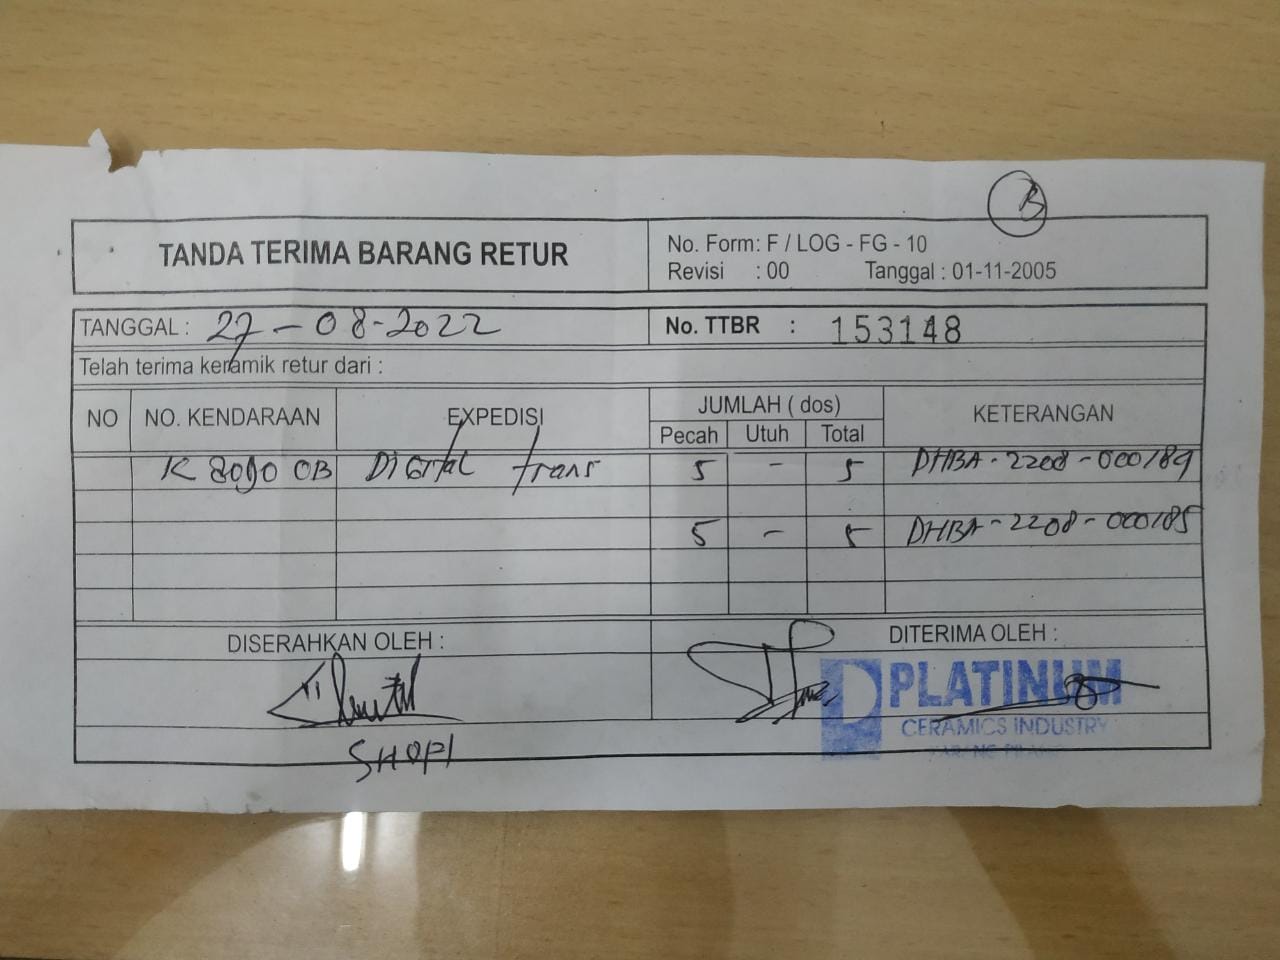 B
TANDA TERIMA BARANG RETUR
No. Form: F / LOG - FG - 10
Revisi : 00 Tanggal : 01-11-2005
TANGGAL : 27-08-2022 No. TTBR : 153148
Telah terima keramik retur dari :
NO NO. KENDARAAN EXPEDISI JUMLAH ( dos) KETERANGAN
Pecah Utuh Total
K 8090 OB Digital trans 5 - 5 DHBA-2208-000189
5 - 5 DHBA-2208-000185
DISERAHKAN OLEH : DITERIMA OLEH :
PLATINUM
CERAMICS INDUSTRY
SHOFI